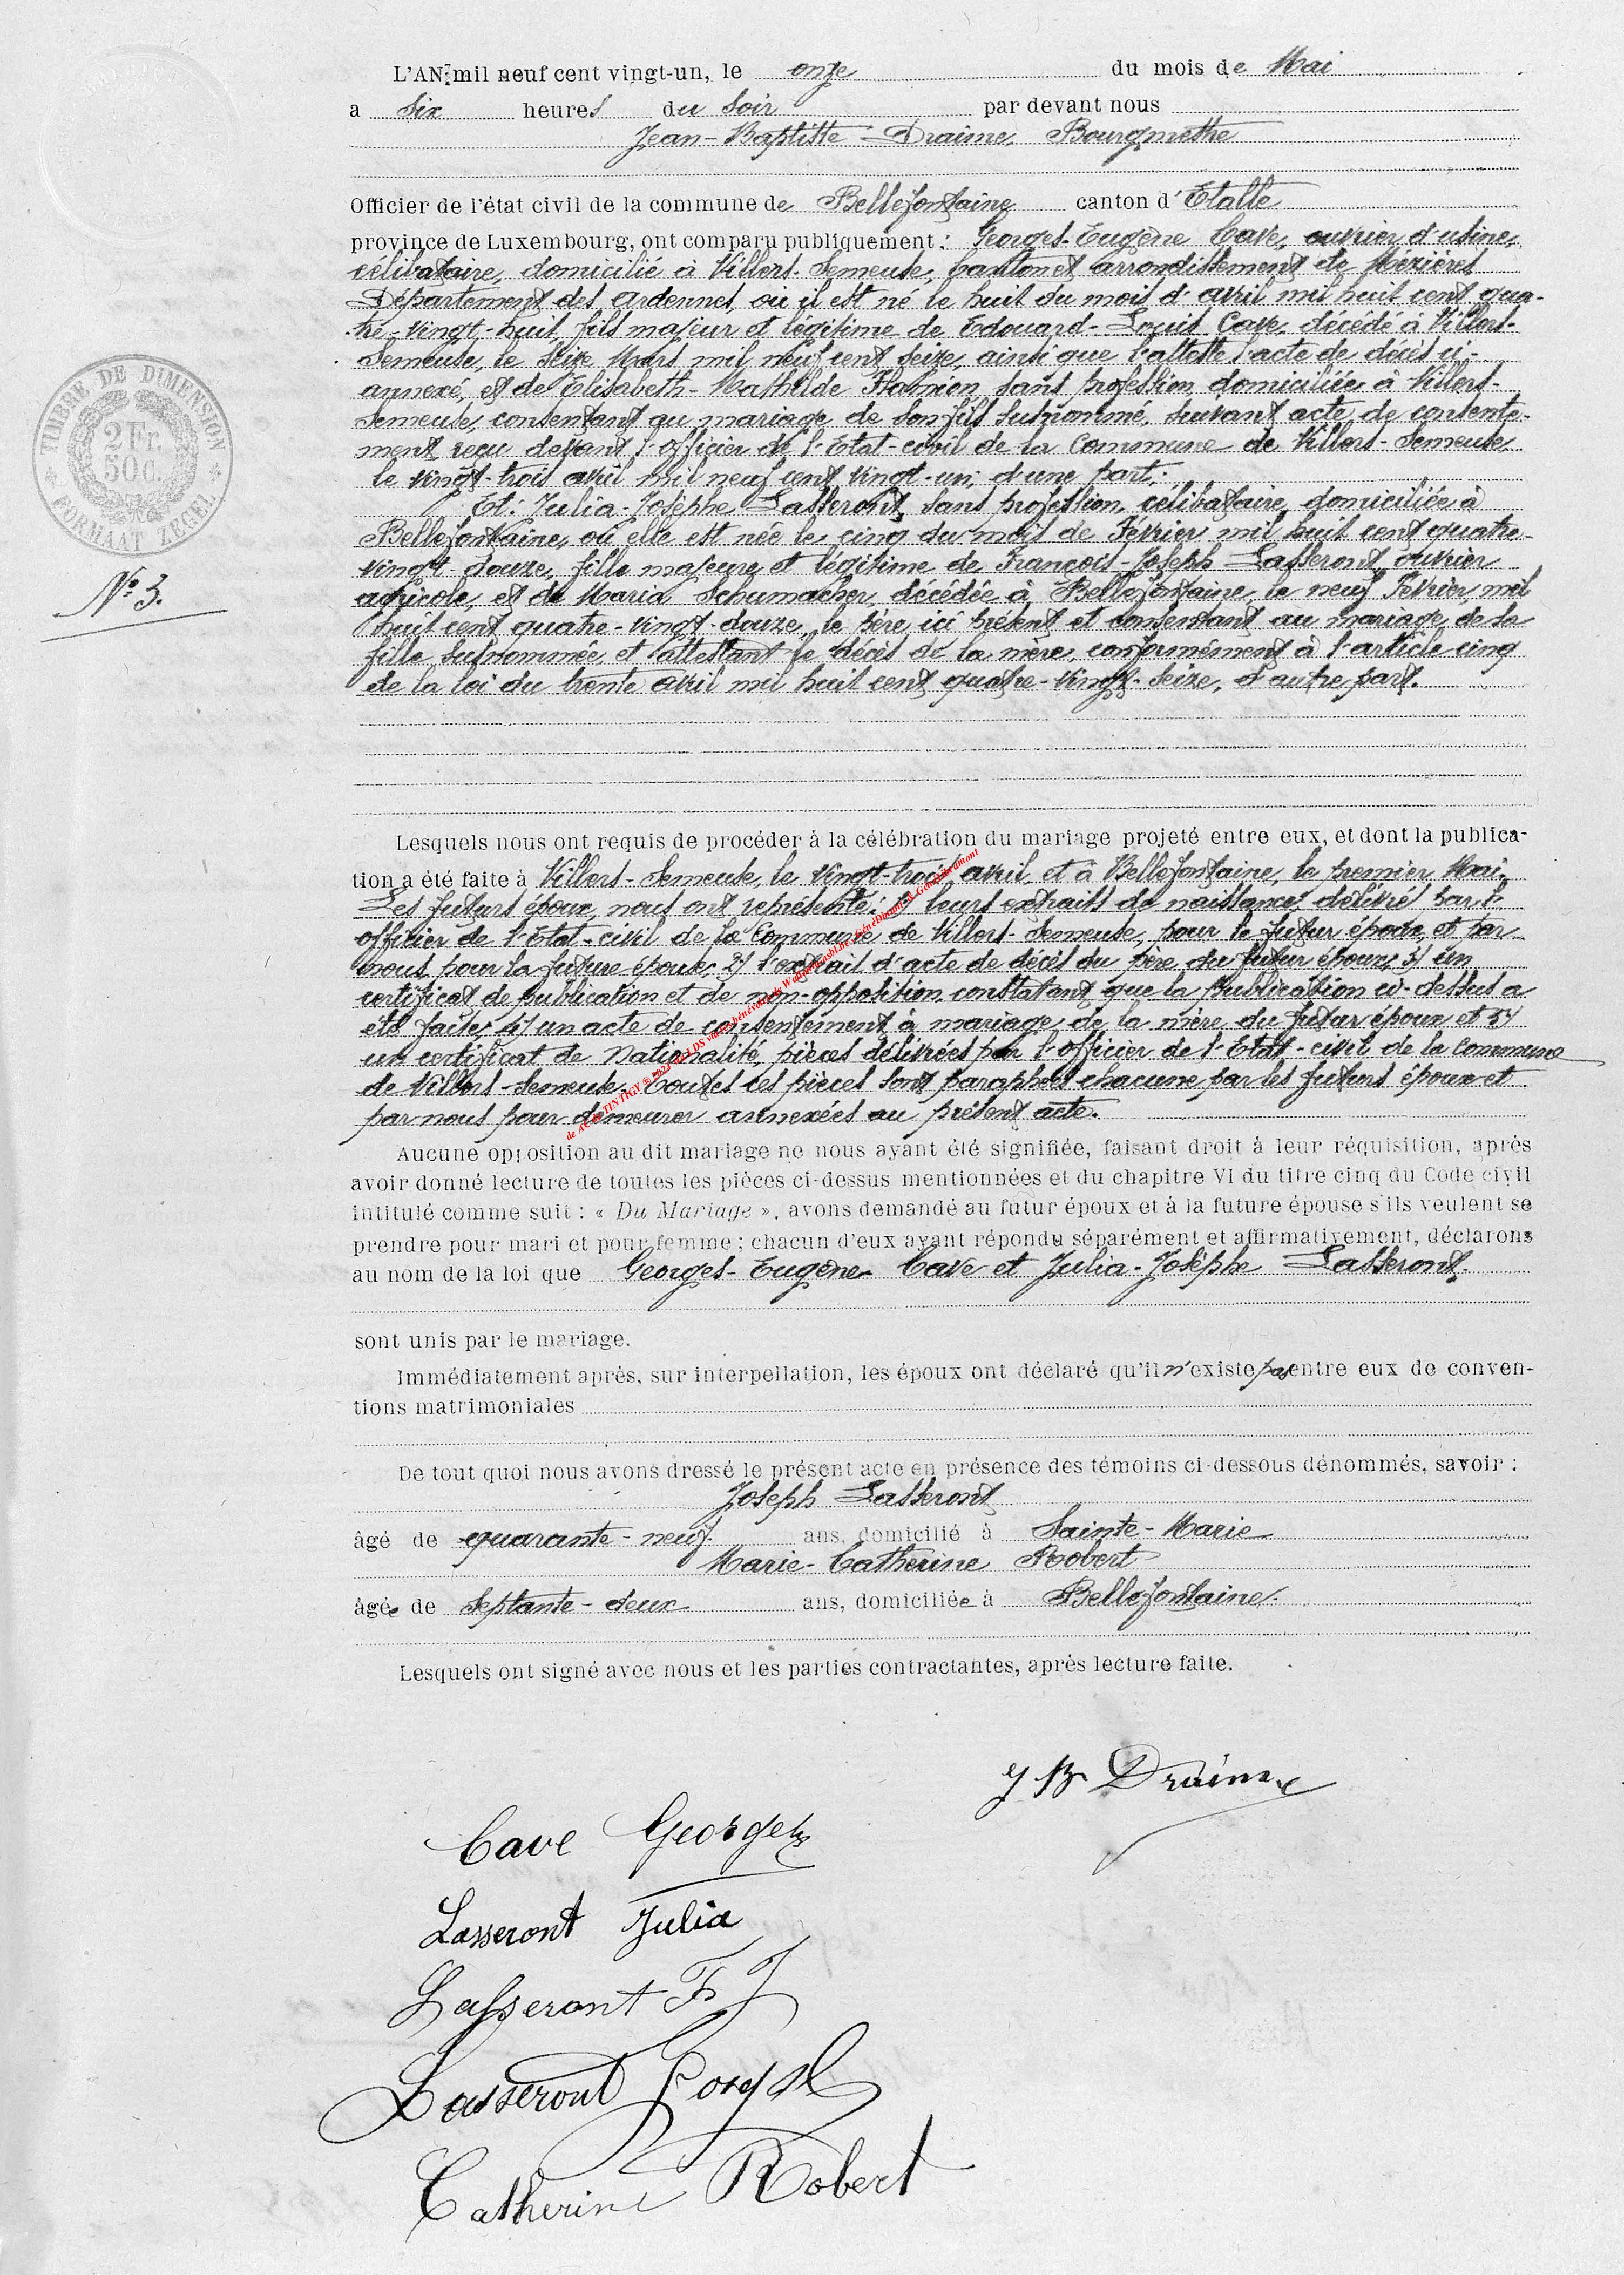 L'AN mil neuf cent vingt-un, le onze du mois de Mai
a six heures du soir par devant nous
Jean-Baptiste Draime, Bourgmestre
Officier de l'état civil de la commune de Bellefontaine canton d'Etalle
province de Luxembourg, ont comparu publiquement : Georges-Eugène Cave, ouvrier d'usine,
célibataire, domicilié à Villers-Semeuse, Canton et arrondissement de Mézières
Département des Ardennes, où il est né le huit du mois d'avril mil huit cent qua-
tre-vingt-huit, fils majeur et légitime de Edouard-Louis Cave, décédé à Villers-
Semeuse, le seize Mars mil neuf cent seize, ainsi que l'atteste l'acte de décès ci-
annexé, et de Elisabeth-Mathilde sans profession, domiciliée à Villers-
Semeuse, consentant au mariage de son fils susnommé, suivant acte de consente-
ment reçu devant l'officier de l'Etat-civil de la Commune de Villers-Semeuse,
le vingt-trois avril mil neuf cent vingt-un; d'une part;
Et: Julia-Josèphe Lasseront, sans profession, célibataire, domiciliée à
Bellefontaine, où elle est née le cinq du mois de Février mil huit cent quatre-
vingt-douze, fille majeure et légitime de François-Joseph Lasseront, ouvrier
agricole, et de Maria Schumacher, décédée à Bellefontaine, le neuf Février mil
huit cent quatre-vingt-douze, le père ici présent et consentant au mariage de sa
fille susnommée et attestant le décès de la mère, conformément à l'article cinq
de la loi du trente avril mil huit cent quatre-vingt-seize, d'autre part.
N° 3.
TIMBRE DE DIMENSION
2 Fr.
50 C.
FORMAAT ZEGEL
Lesquels nous ont requis de procéder à la célébration du mariage projeté entre eux, et dont la publica-
tion a été faite à Villers-Semeuse, le vingt-trois avril, et à Bellefontaine, le premier Mai.
Les futurs époux, nous ont représenté: 1) leurs extraits de naissance, délivré par l'
officier de l'Etat-civil de la Commune de Villers-Semeuse, pour le futur époux, et par
nous pour la future épouse; 2) l'extrait d'acte de décès du père du futur époux; 3) un
certificat de publication et de non-opposition constatant que la publication ci-dessus a
été faite; 4) un acte de consentement à mariage de la mère du futur époux et 5)
un certificat de Nationalité, pièces délivrées par l'officier de l'Etat-civil de la Commune
de Villers-Semeuse. Toutes ces pièces sont paraphées chacune par les futurs époux et
par nous pour demeurer annexées au présent acte.
Aucune opposition au dit mariage ne nous ayant été signifiée, faisant droit à leur réquisition, après
avoir donné lecture de toutes les pièces ci-dessus mentionnées et du chapitre VI du titre cinq du Code civil
intitulé comme suit : « Du Mariage », avons demandé au futur époux et à la future épouse s'ils veulent se
prendre pour mari et pour femme ; chacun d'eux ayant répondu séparément et affirmativement, déclarons
au nom de la loi que Georges-Eugène Cave et Julia-Josèphe Lasseront.
sont unis par le mariage.
Immédiatement après, sur interpellation, les époux ont déclaré qu'il n'existe pas entre eux de conven-
tions matrimoniales
De tout quoi nous avons dressé le présent acte en présence des témoins ci-dessous dénommés, savoir :
Joseph Lasseront
âgé de quarante-neuf ans, domicilié à Sainte-Marie
Marie-Catherine Robert
âgée de septante-deux ans, domiciliée à Bellefontaine.
Lesquels ont signé avec nous et les parties contractantes, après lecture faite.
J B Draime
Cave Georges
Lasseront Julia
Lasseront F J
Lasseront Joseph
Catherine Robert